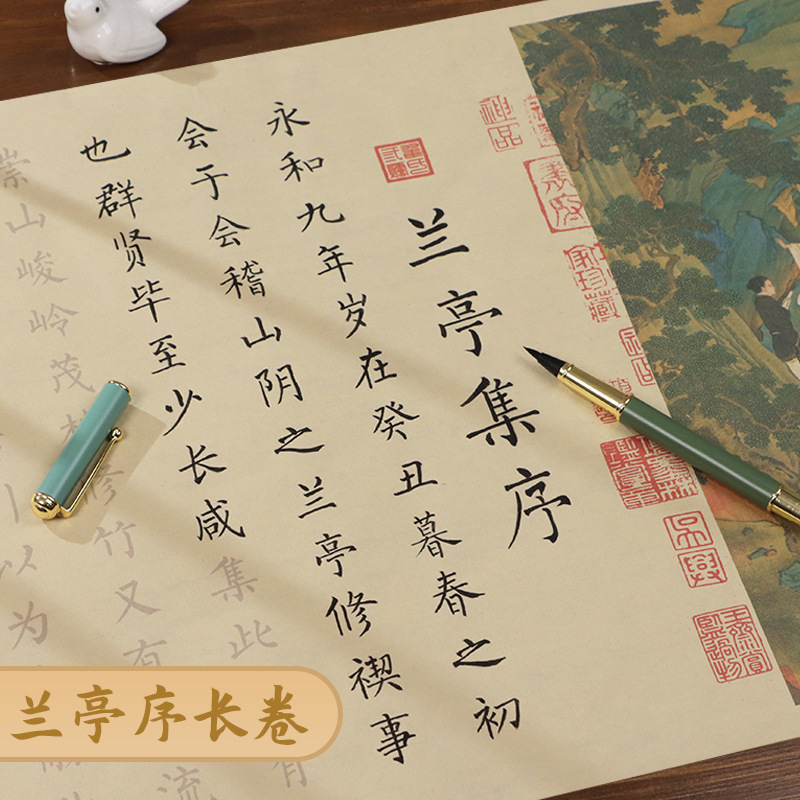 神品
兰亭集序
永和九年岁在癸丑暮春之初
会于会稽山阴之兰亭修禊事
也群贤毕至少长咸集此
有
崇山峻岭茂林修竹又有
流
以为
兰亭序长卷